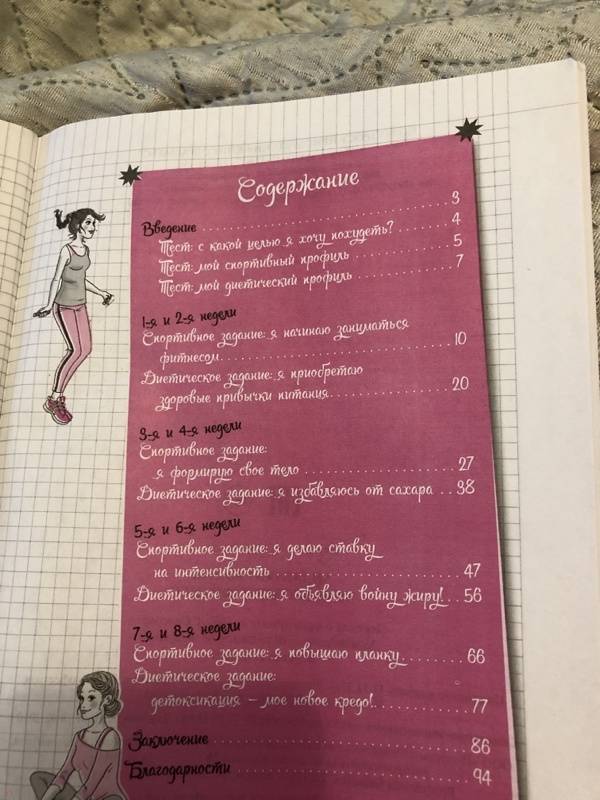 Содержание
Введение 3
Тест: с какой целью я хочу похудеть? 4
Тест: мой спортивный профиль 5
Тест: мой диетический профиль 7
1-я и 2-я недели
Спортивное задание: я начинаю заниматься
фитнесом 10
Диетическое задание: я приобретаю
здоровые привычки питания 20
3-я и 4-я недели
Спортивное задание:
я формирую свое тело 27
Диетическое задание: я избавляюсь от сахара 38
5-я и 6-я недели
Спортивное задание: я делаю ставку
на интенсивность 47
Диетическое задание: я объявляю войну жиру! 56
7-я и 8-я недели
Спортивное задание: я повышаю планку 66
Диетическое задание:
детоксикация – мое новое кредо! 77
Заключение 86
Благодарности 94